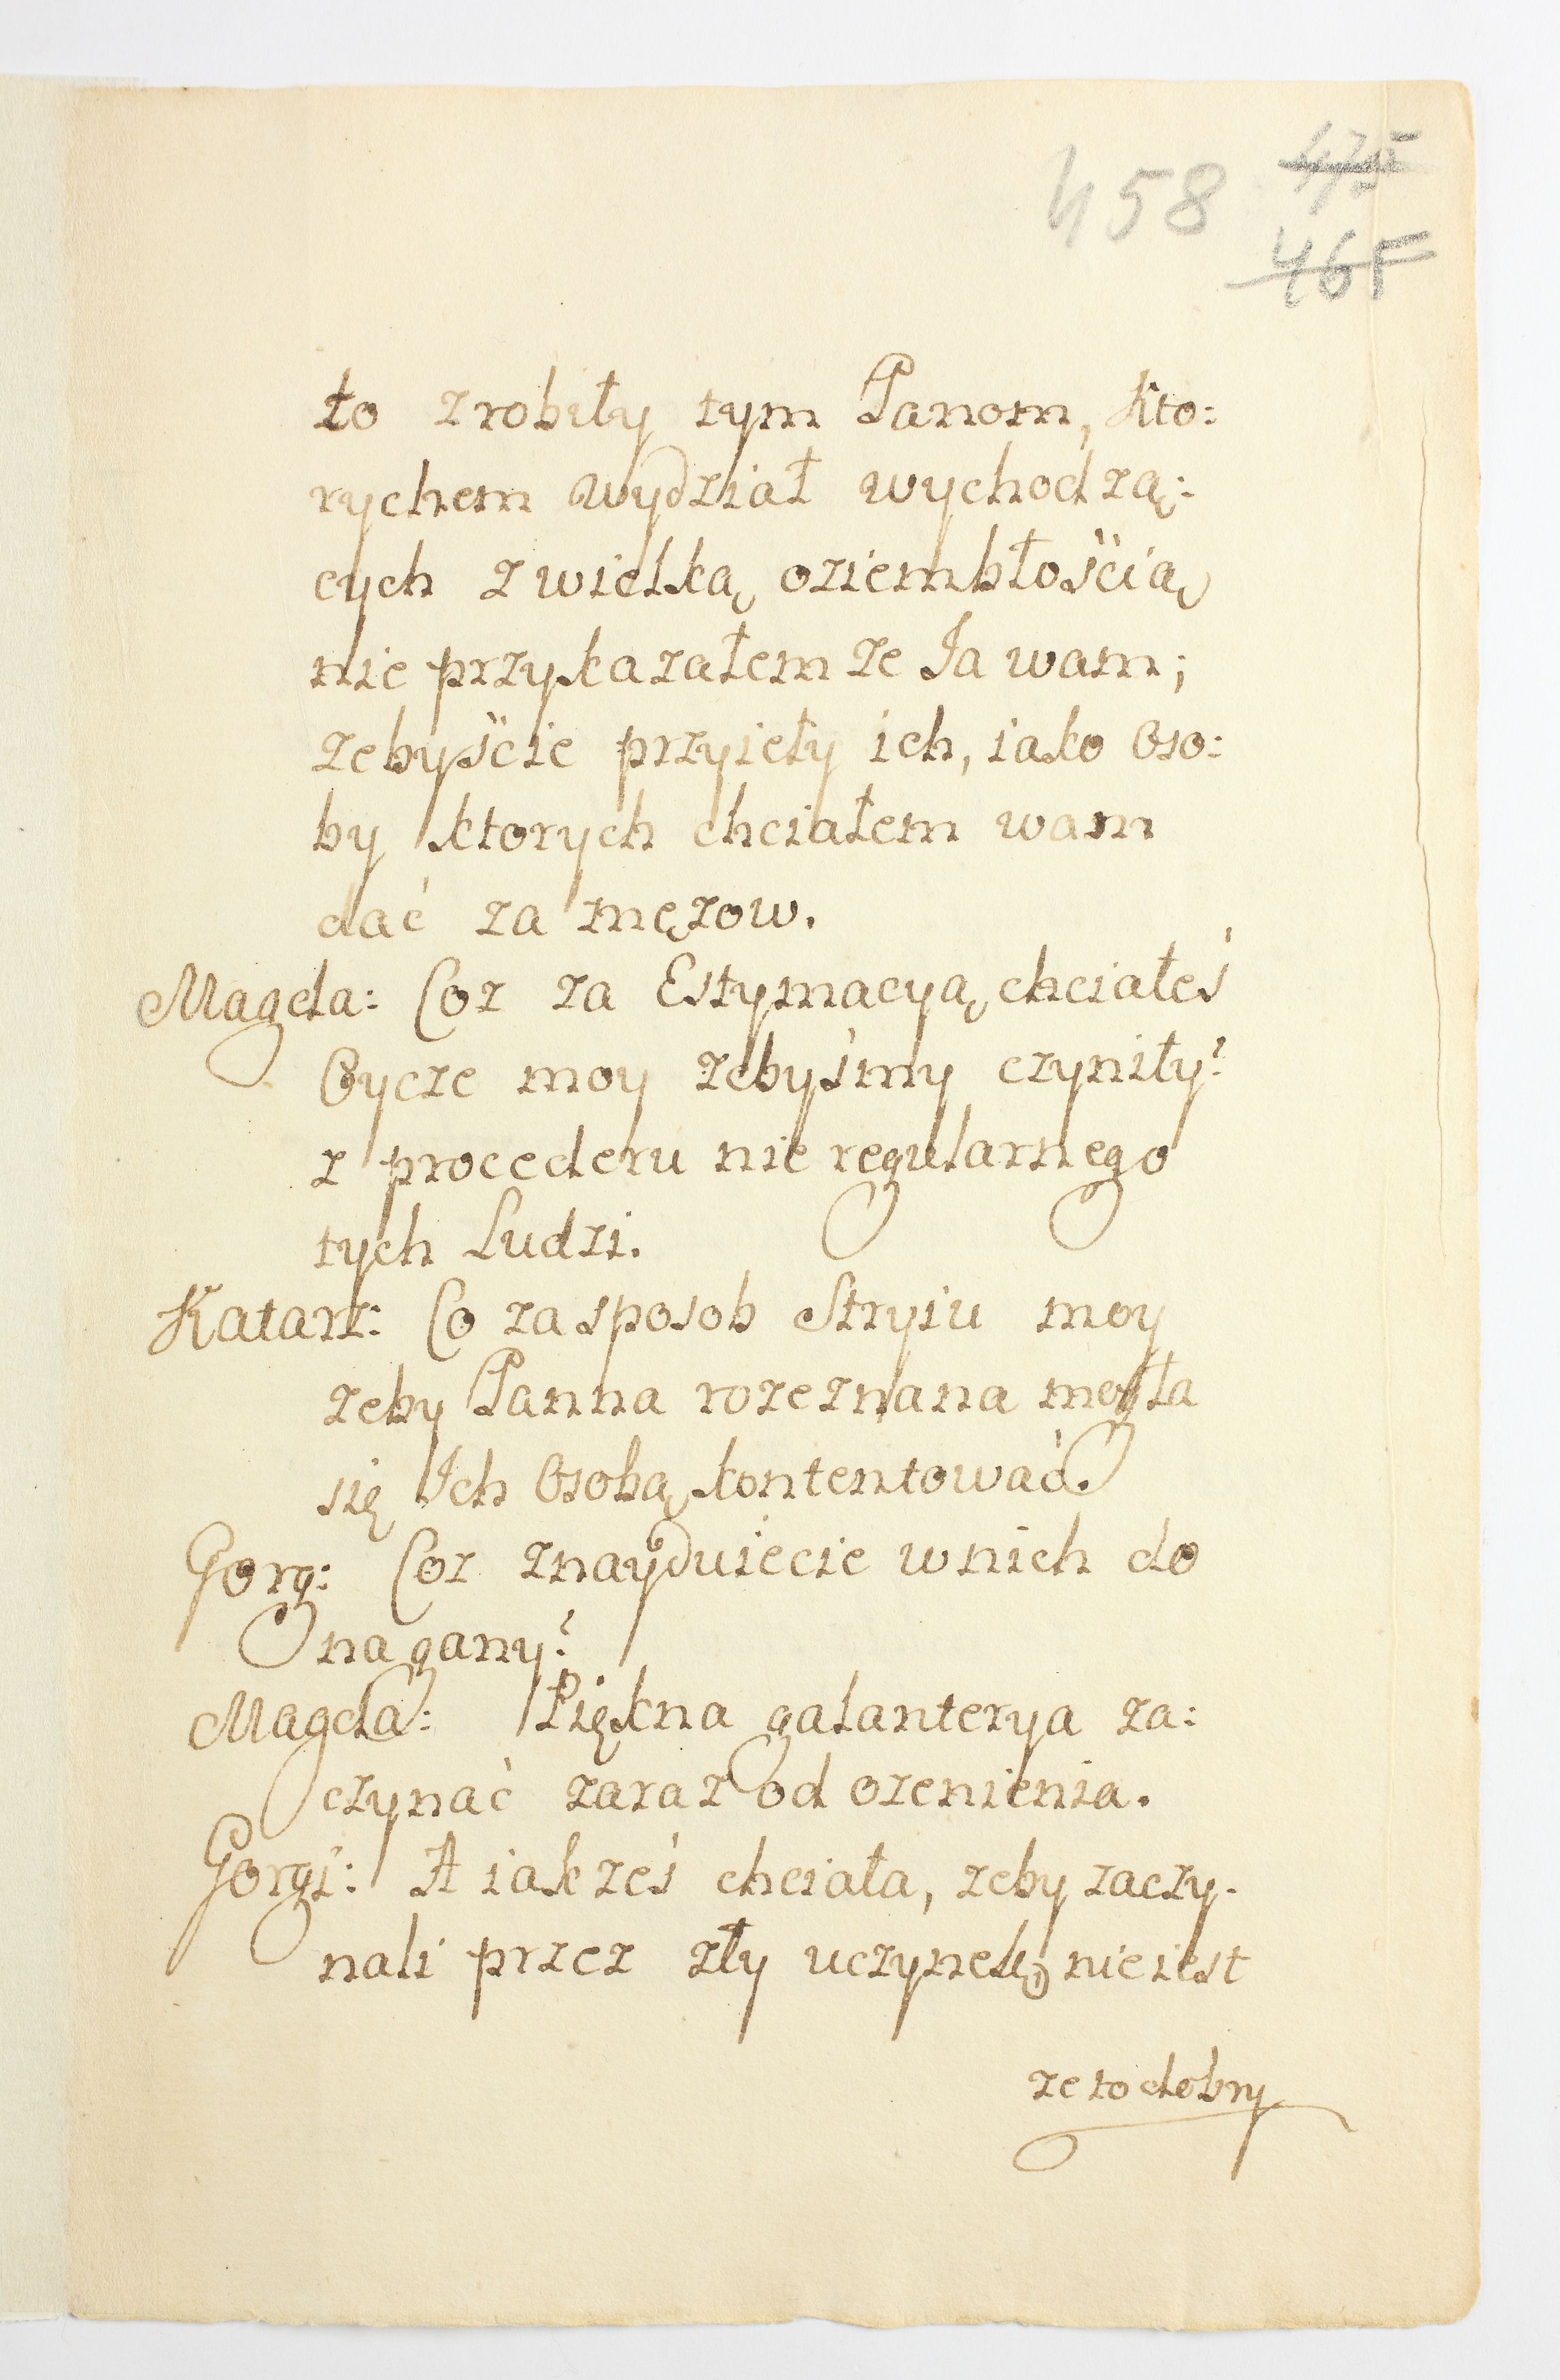 458 475
465
to zrobiły tym Panom, Kto:
rychem wydział wychodzą:
cych z wielką oziembłośćią
nie przykazałem że Ia wam;
zebyśćie przyieły ich, iako Oso:
by ktorych chciałem wam
dać za męzow.
Magda: Coz za Estymacyą chciałeś
Oycze moy zebyśmy czyniły?
z procederu nie regularnego
tych Ludzi.
Katarz: Co za sposob Stryiu moy
zeby Panna rozeznana mogła
się Ich Osobą kontentować.
Gorg: Coz znayduiecie w nich do
nagany?
Magda: Piękna galanterya za:
czynać zaraz od ozenienia.
Gorgi: A iakześ chciała, zeby zaczy-
nali przez zły uczynek, nie iest
ze to dobry